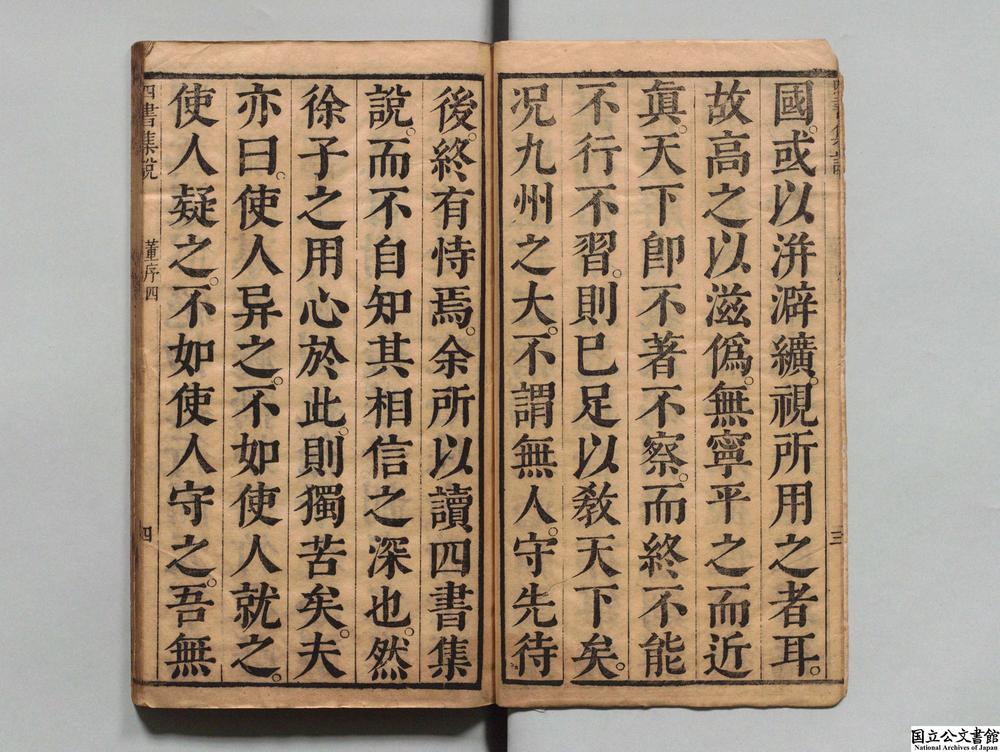 國。或以洴澼纊。視所用之者耳。
故高之以滋僞。無寧平之而近
眞。天下卽不著不察。而終不能
不行不習。則已足以敎天下矣。
況九州之大。不謂無人。守先待
三
後。終有恃焉。余所以讀四書集
說。而不自知其相信之深也。然
徐子之用心於此。則獨苦矣。夫
亦曰。使人异之。不如使人就之。
使人疑之。不如使人守之。吾無
四書集說
董序四
四
国立公文書館
National Archives of Japan